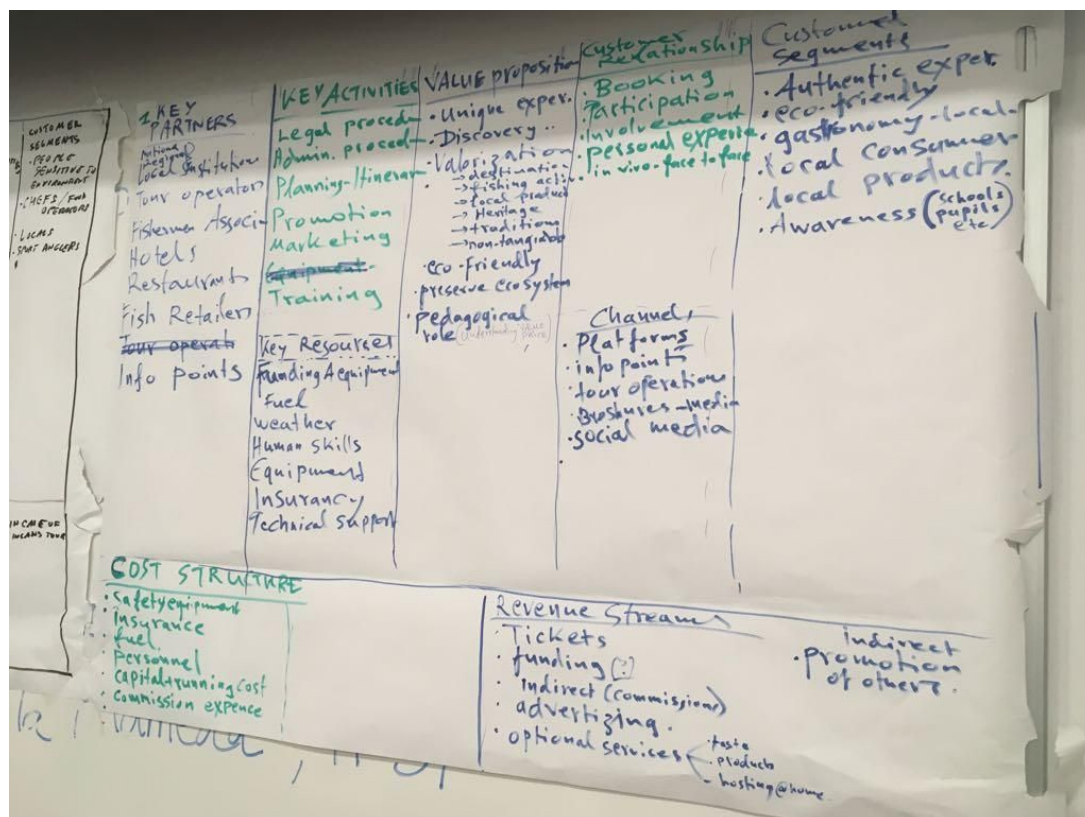 CUSTOMER
SEGMENTS
· PEOPLE
SENSITIVE TO
ENVIRONMENT
· CHEFS / FOOD
OPERATORS
· LOCALS
· SPORT ANGLERS
1. KEY
PARTNERS
National
Regional
Local Institution
Tour operators
Fishermen Associ-
Hotels
Restaurants
Fish Retailers
Tour operat
Info points
KEY ACTIVITIES
Legal proced-
Admin. proced-
Planning-Itinerar-
Promotion
Marketing
Equipment
Training
Key Resources
Funding & equipment
Fuel
weather
Human skills
Equipment
Insurancy
Technical support
VALUE proposition
· Unique exper.
· Discovery..
· Valorization
→ destination
→ fishing activ
→ local product
→ Heritage
→ traditions
→ non-tangiable
· eco-friendly
· preserve ecosystem
· pedagogical
role (understanding
Customer
Relationship
· Booking
· Participation
· Involvement
· personal experie
· in vivo-face to face
Channels
· Platforms
· info points
· tour operations
· Broshures-media
· social media
Customer
Segments
· Authentic exper.
· eco-friendly
· gastronomy-local-
· local consummer
· local products.
· Awareness (schools
pupils
etc)
COST STRUCTURE
· Safety equipment
· Insurance
· fuel.
· Personnel
· capital+running cost
· Commission expence
Revenue Streams
· Tickets
· funding (?)
· Indirect (commissions)
· advertizing.
· optional services
· taste
· products
- hosting@home
indirect
· promotion
of others.